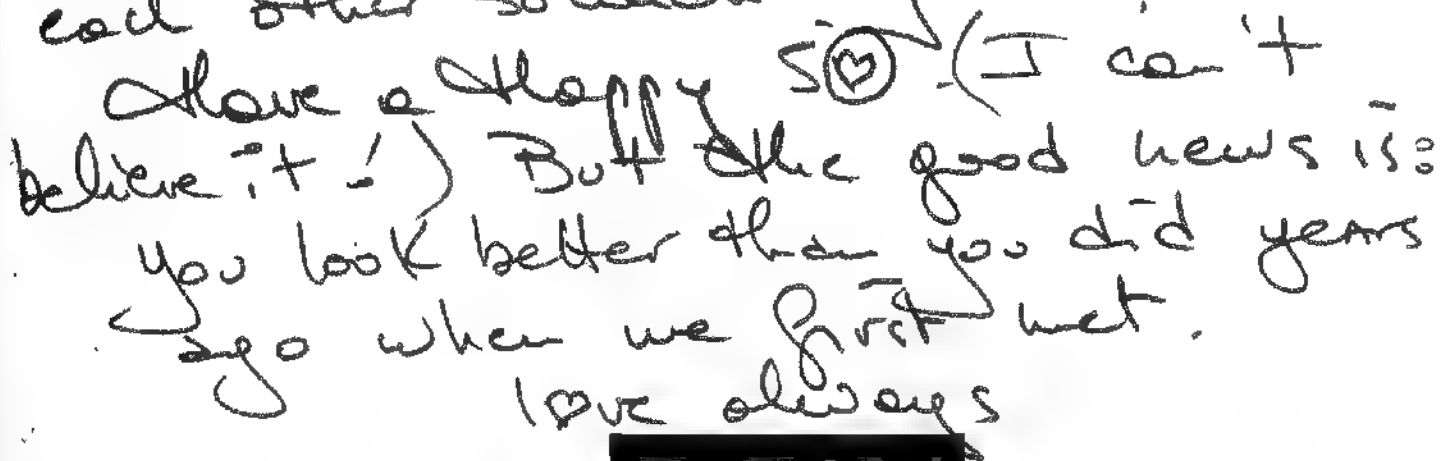 each other so much
Have a Happy 50. (I can't
believe it!) But the good news is:
you look better than you did years
ago when we first met.
love always